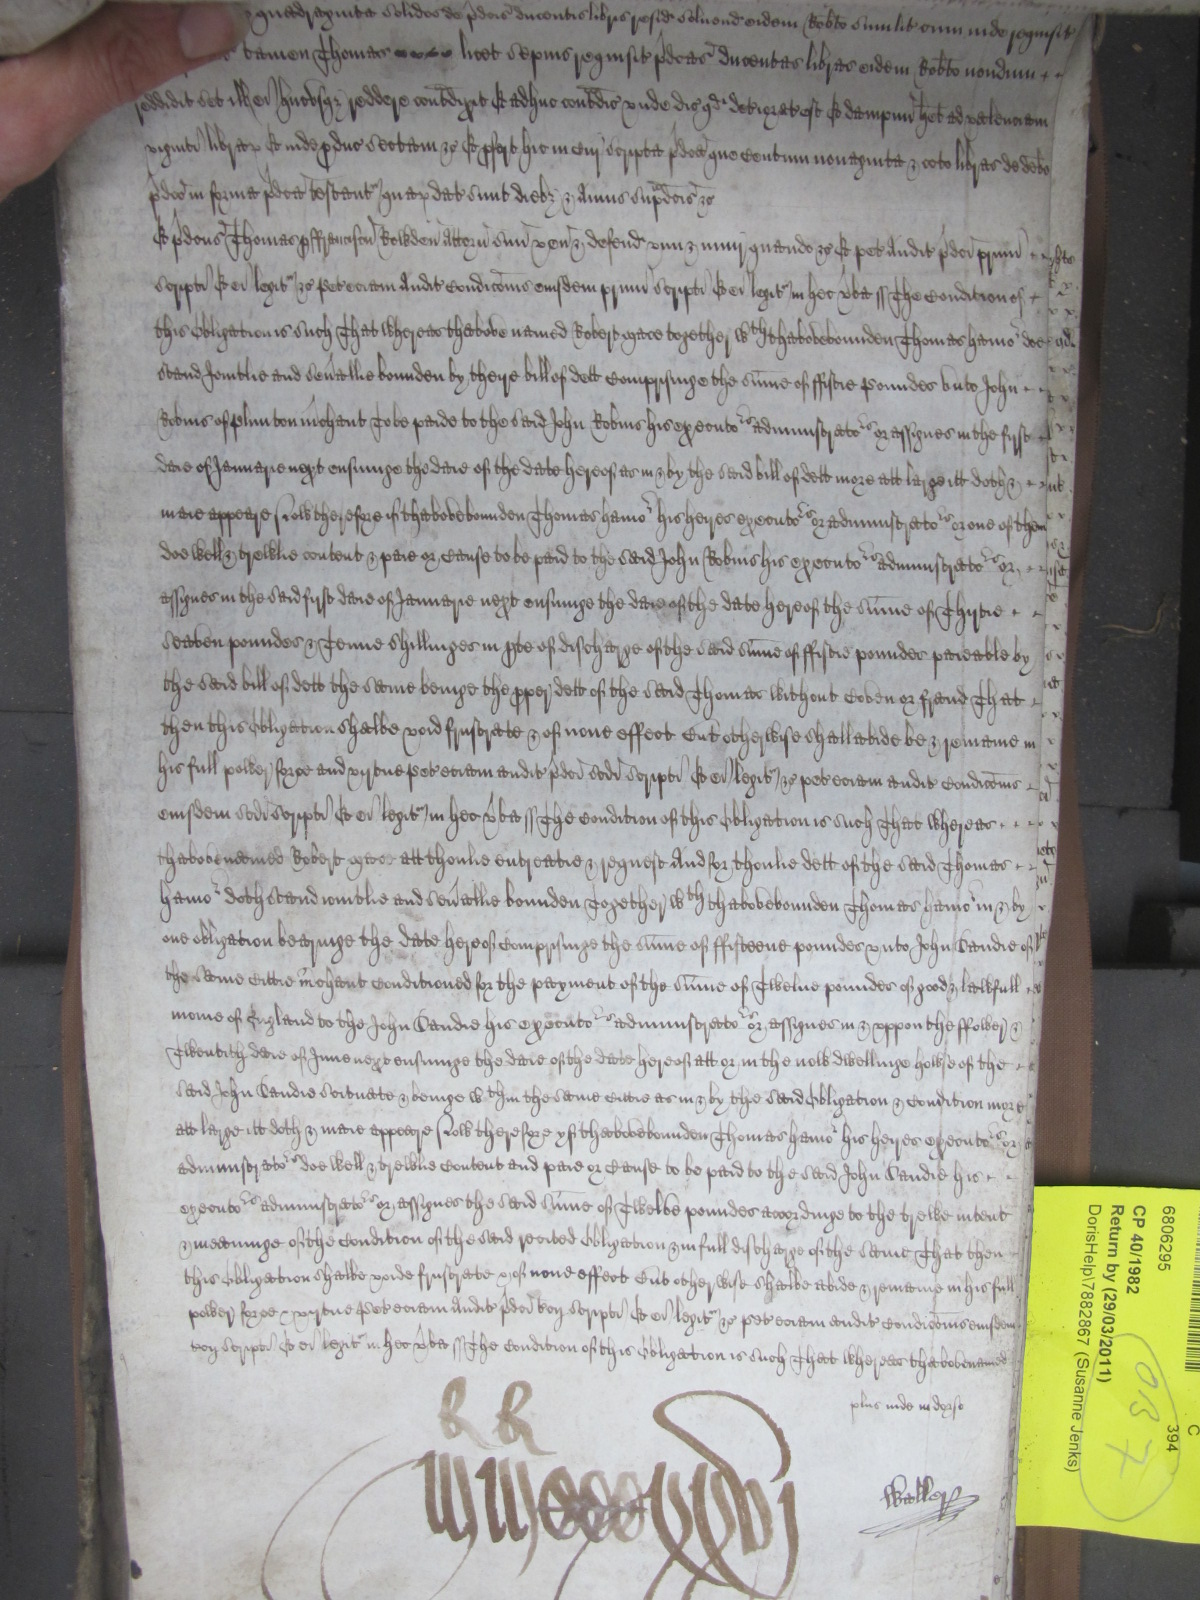 quadraginta solidos de pdcis ducentis libris resid solvend eidem Robto simulit cum inde requisit
tamen Thomas licet sepius requisit pdcas ducentas libras eidem Robto nondum
reddidit set ill ei hucusqz reddere contdixit et adhuc contdic unde dic qd detioratus est et dampnu het ad valenciam
viginti librar et inde pduc sectam zc Et pfert hic in Cur scripta pdca que Centum nonaginta & octo libras de debo
pdco in forma pdca testant quar dat sunt diebz & Annis supadcis zc
Et pdcus Thomas p ffranciscu Rolkden Attorn suu ven & defend vim & iniur quando zc Et pet Audit pdci primi
scripti Et ei legit zc pet eciam Audit Condicois eiusdem primi scripti Et ei legit in hec vba ss The Condicion of
this Obligation is such That whereas thabove named Robert Mace together wth thabovebounden Thomas hamo doe
stand Jointlie and sevallie bounden by theire bill of dett Comprisinge the sume of ffiftie poundes unto John
Robins of plimton mchant To be paide to the said John Robins his executors administrators or assignes in the first
daie of Januarie next ensuinge the daie of the date hereof as in & by the said bill of dett more att large itt doth &
maie appeare Now therefore if thabovebounden Thomas hamo his heires executors or administrators or one of them
doe well & trewlie content & paie or Cause to be paid to the said John Robins his executors administrators or
assignes in the said first daie of Januarie next ensuinge the daie of the date hereof the sume of Thirtie
seaven poundes & Tenne shillinges in pte of discharge of the said sume of ffiftie poundes paieable by
the said bill of dett the same beinge the pper dett of the said Thomas without Coven or fraud That
then this Obligation shalbe void frustrate & of none effect But otherwise shall abide be & remaine in
his full power force and virtue pet eciam audit pdci scdi scripti Et ei legit zc pet eciam audit Condicois
eiusdem scdi scripti Et ei legit in hec vba ss The Condicion of this Obligation is such That whereas
thabovenamed Robert Mace att thonlie entreatie & request And for thonlie dett of the said Thomas
hamo doth stand iointlie and sevallie bounden Together wth thabovebounden Thomas hamo in & by
one obligation bearinge the date hereof Comprisinge the sume of ffifteene poundes unto John Sandie of
the same Cittie mchant Conditioned for the payment of the sume of Twelve poundes of good & lawfull
monie of England to the John Sandie his executors administrators or assignes in & uppon the ffower &
Twentith daie of June next ensuinge the daie of the date hereof att or in the now dwellinge howse of the
said John Sandie scituate & beinge wthin the same Cittie as in & by the said Obligation & Condition more
att large itt doth & maie appeare Now therefore yf thabovebounden Thomas hamo his heires executors or
administrators doe well & trewlie Content and paie or Cause to be paid to the said John Sandie his
executors administrators or assignes the said sume of Twelve poundes accordinge to the trewe intent
& meaninge of the Condition of the said recited Obligation & in full discharge of the same That then
this Obligation shalbe voide frustrate & of none effect But otherwise shalbe abide & remaine in his full
power force & virtue pet eciam Audit pdci tcii scripti Et ei legit zc pet eciam audit Condicois eiusdem
tcii scripti Et ei legit in hec vba ss The Condition of this Obligation is such That whereas thabovenamed
plus inde in dorso
Waller
6806295
C
394
CP 40/1982
Return by (29/03/2011)
DorisHelp\7882867 (Susanne Jenks)